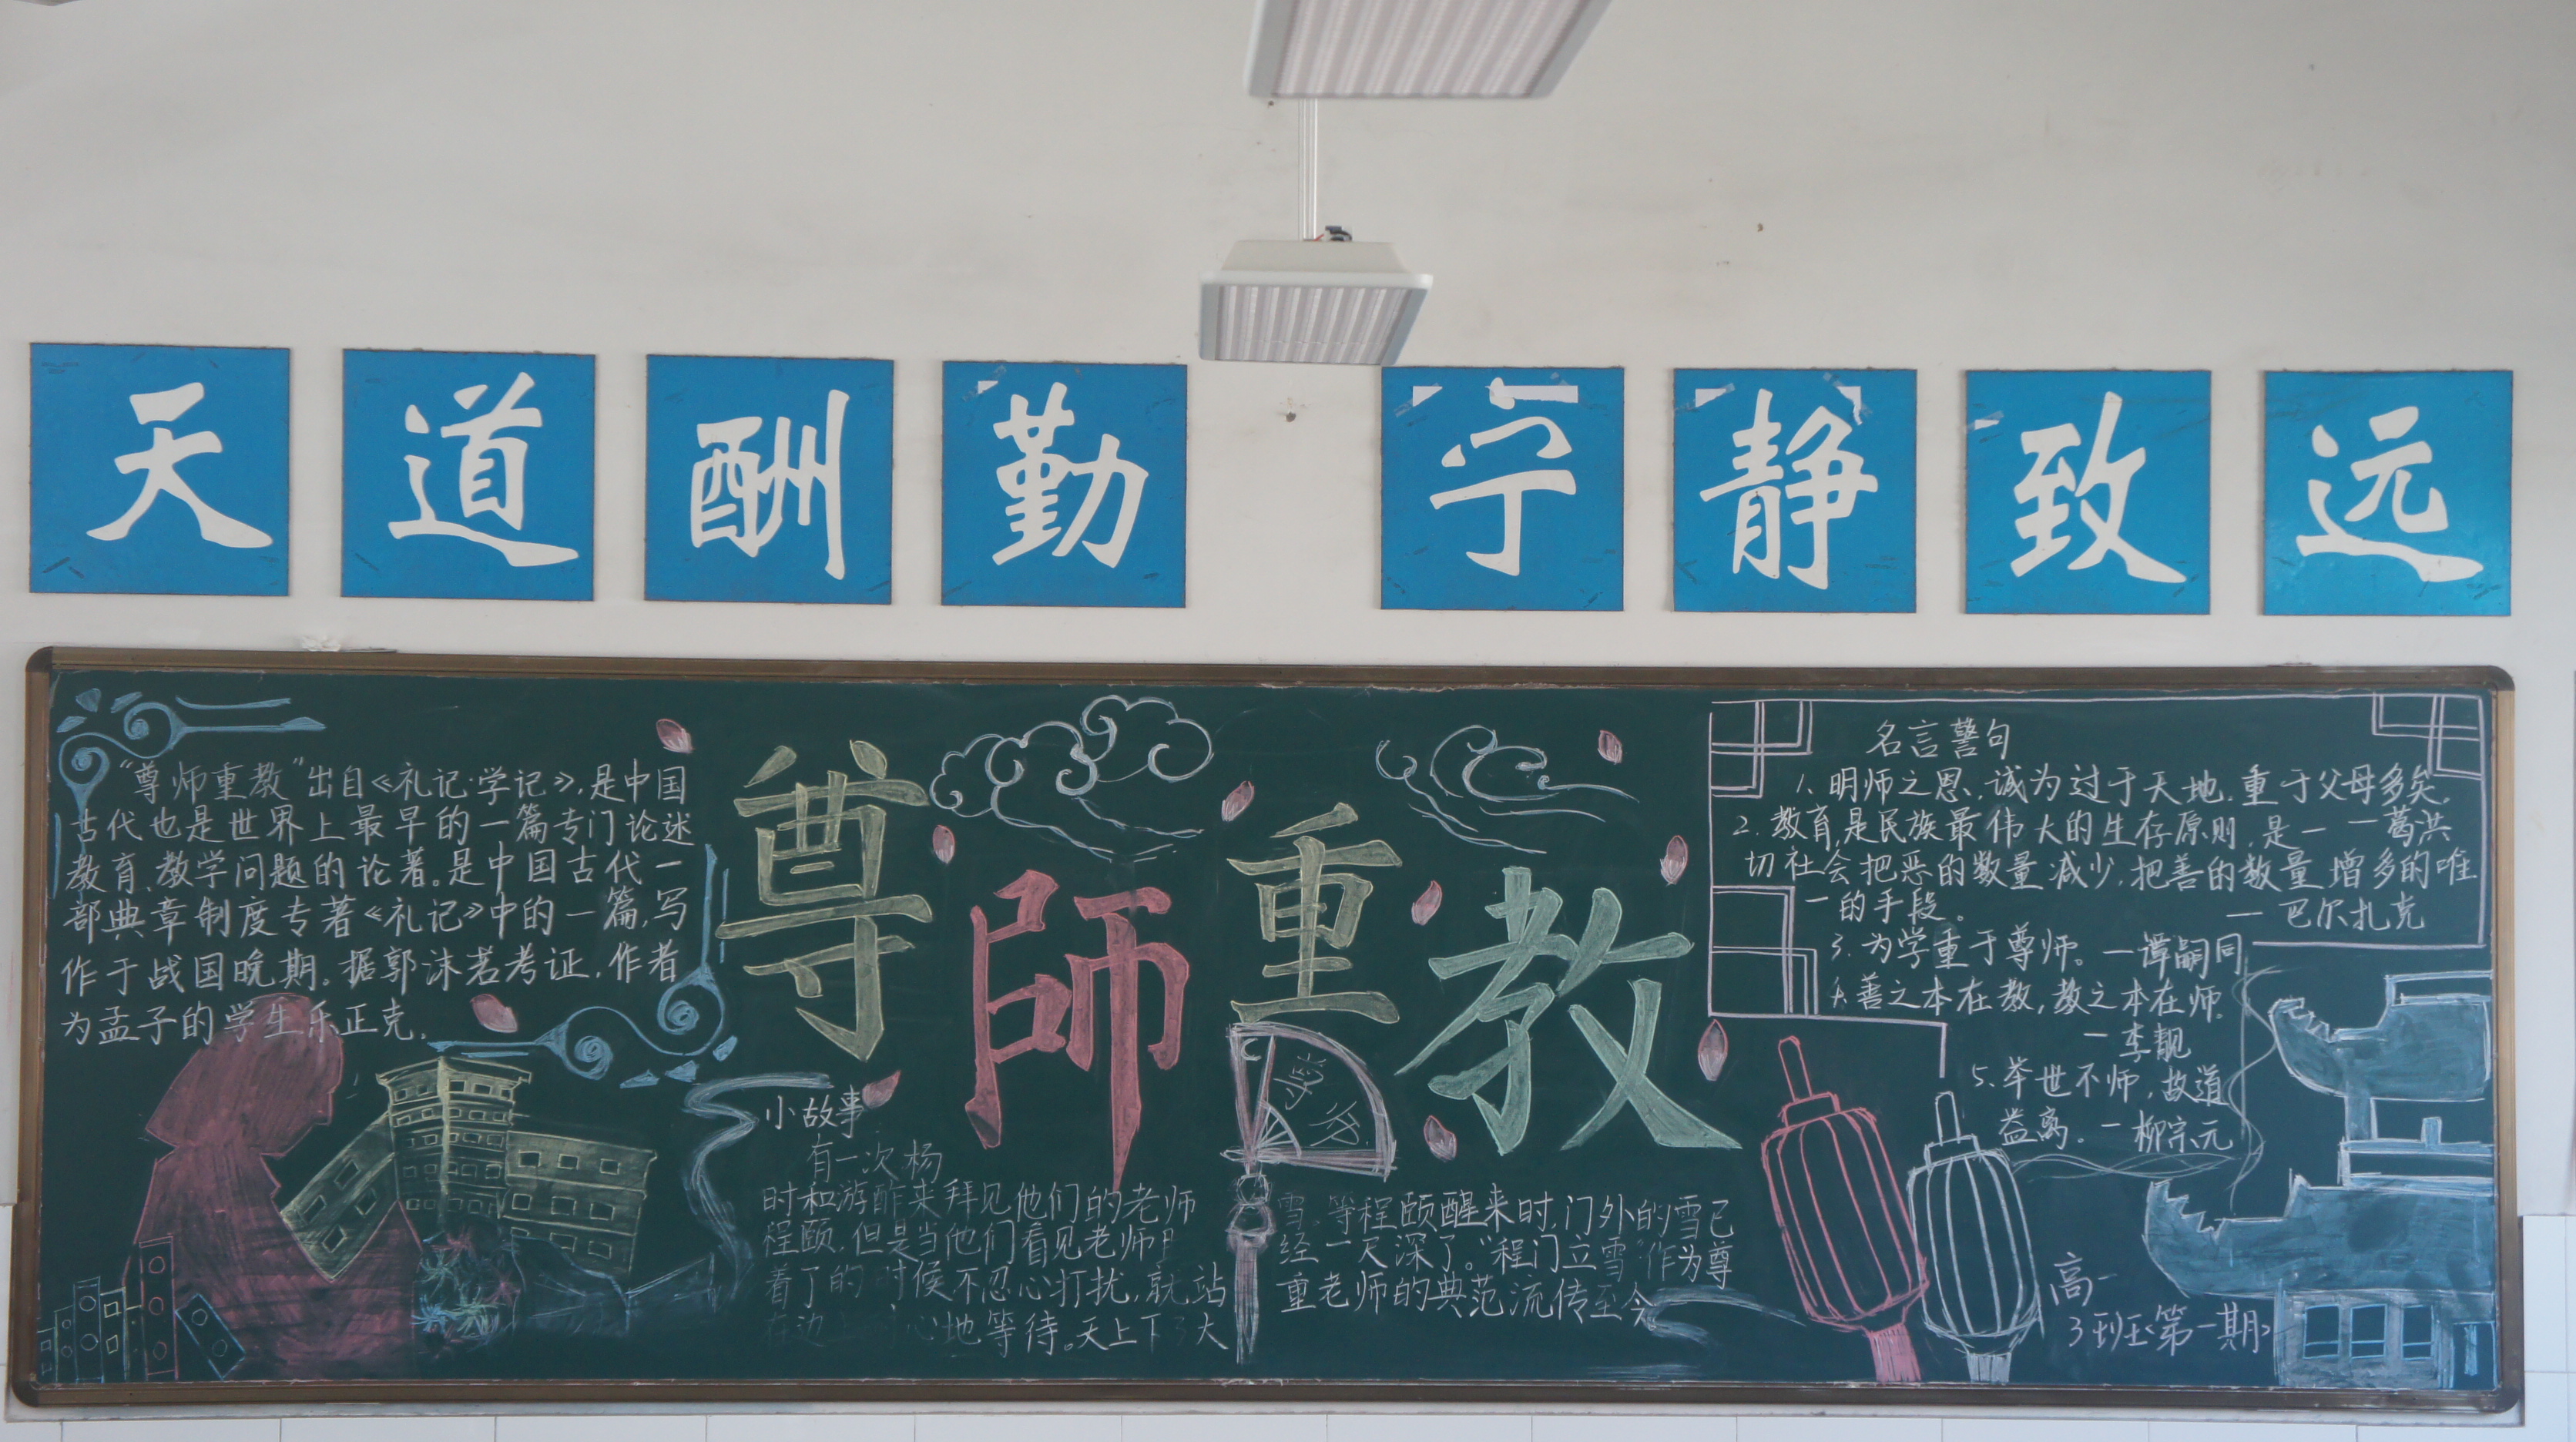 天道酬勤 宁静致远
“尊师重教”出自《礼记·学记》，是中国
古代也是世界上最早的一篇专门论述
教育、教学问题的论著。是中国古代一
部典章制度专著《礼记》中的一篇，写
作于战国晚期。据郭沫若考证，作者
为孟子的学生乐正克。
尊師重教
小故事
有一次杨
时和游酢来拜见他们的老师
程颐，但是当他们看见老师
着了的时候不忍心打扰，就站
在边心地等待。天上下了大
雪。等程颐醒来时，门外的雪已
经一尺深了。“程门立雪”作为尊
重老师的典范流传至今
名言警句
1、明师之恩，诚为过于天地，重于父母多矣。
—葛洪
2、教育，是民族最伟大的生存原则，是一
切社会把恶的数量减少，把善的数量增多的唯
一的手段。 —巴尔扎克
3、为学重于尊师。—谭嗣同
4、善之本在教，教之本在师。
—李觏
5、举世不师，故道
益离。—柳宗元
高一
3班《第一期》